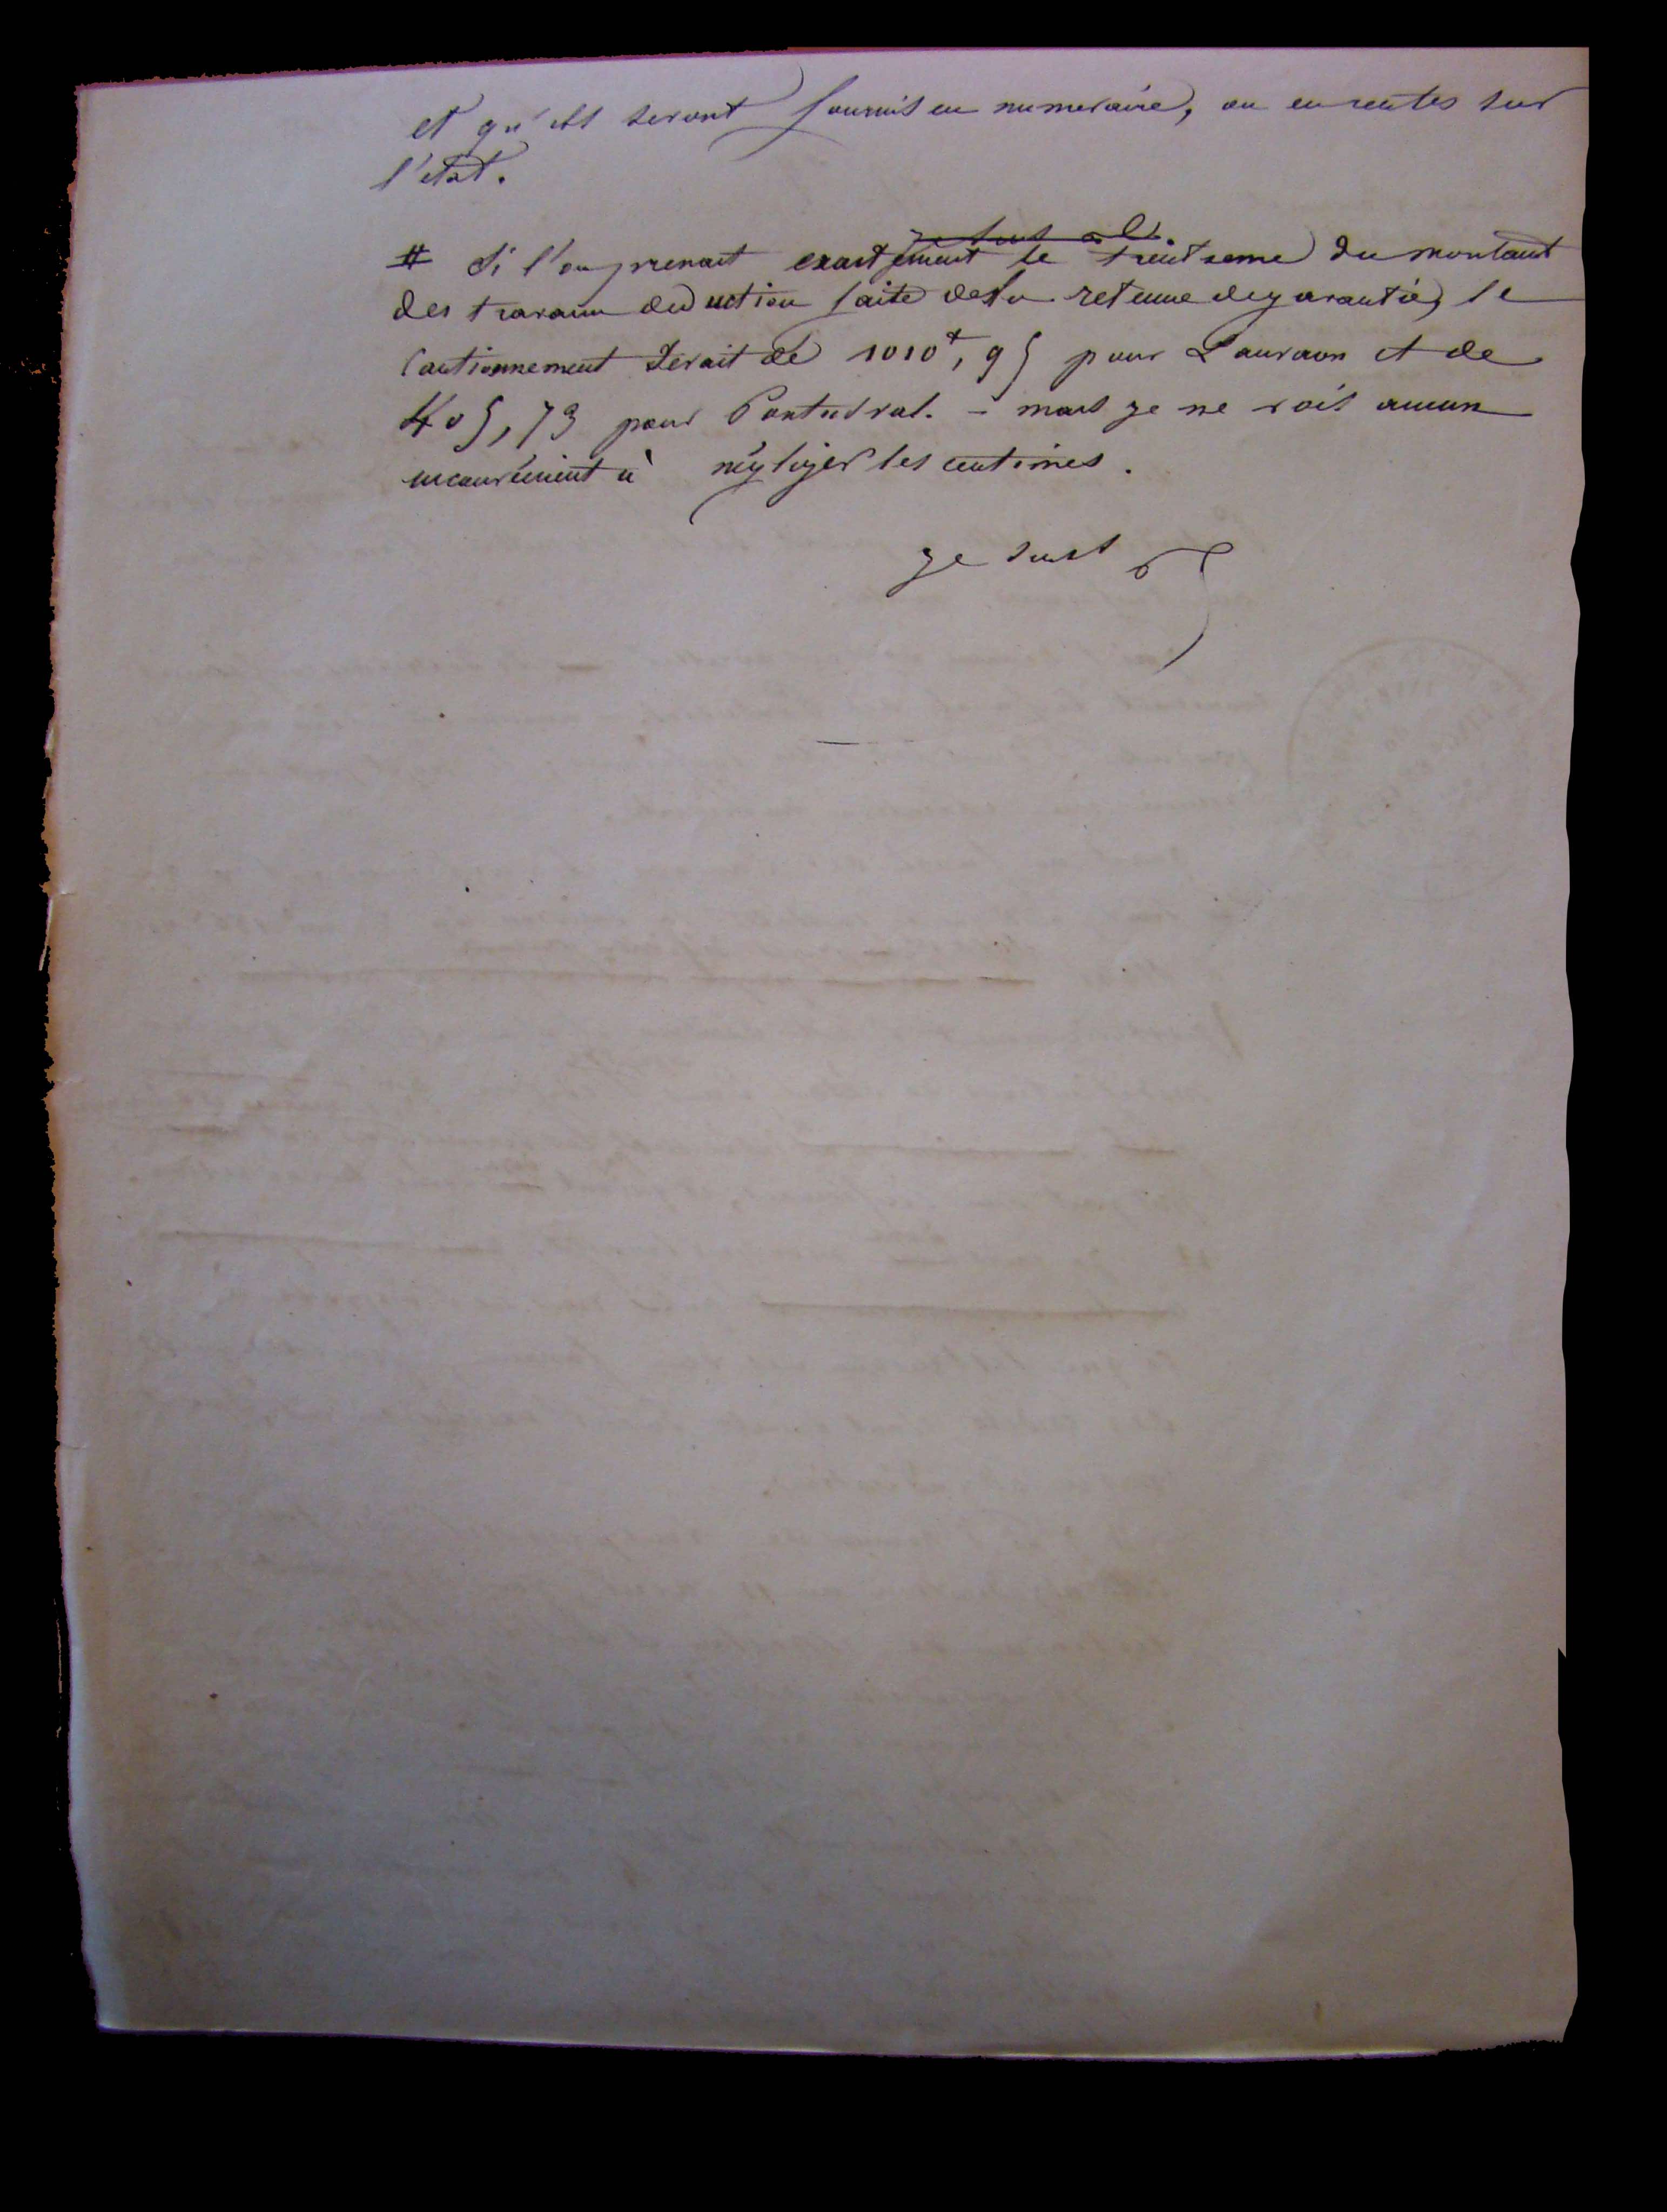 et qu'ils seront fournis en numeraire, ou en rentes sur
l'etat.
je suis
# Si l'on prenait exactement le trentieme du montant
des travaux deduction faite de la retenue de garantie, le
cautionnement serait de 1010f, 95 pour Lauraon et de
405, 73 pour - mais je ne vois aucun
inconvénient à négliger les centimes.
je suis